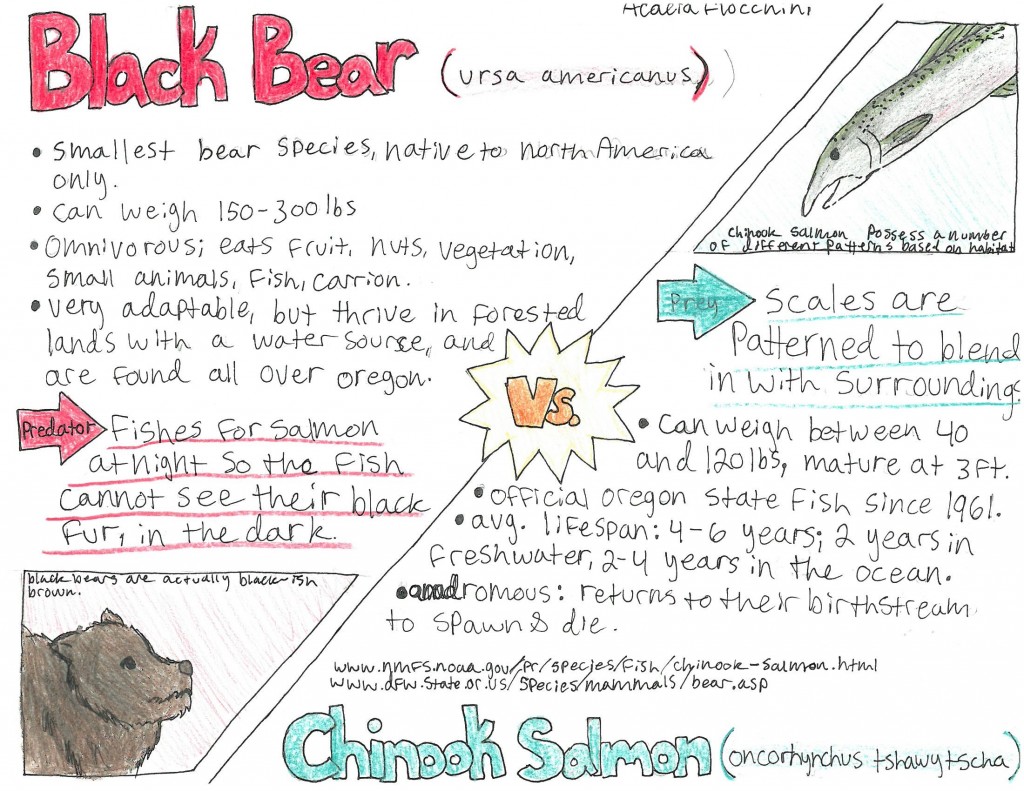 Acacia Flocchini
Black Bear (ursa americanus)
• smallest bear species, native to north America
only.
• can weigh 150-300 lbs
• Omnivorous; eats fruit, nuts, vegetation,
small animals, fish, carrion.
• very adaptable, but thrive in forested
lands with a water source, and
are found all over oregon.
Predator Fishes for salmon
at night so the fish
cannot see their black
fur, in the dark.
black bears are actually black-ish
brown.
Vs.
Chinook Salmon Possess a number
of different patterns based on habitat
Prey Scales are
Patterned to blend
in with surroundings
• Can weigh between 40
and 120lbs, mature at 3ft.
• official oregon state fish since 1961.
• avg. lifespan: 4-6 years; 2 years in
freshwater, 2-4 years in the ocean.
• anadromous: returns to their birthstream
to spawn & die.
www.nmfs.noaa.gov/pr/species/fish/chinook-salmon.html
www.dfw.state.or.us/species/mammals/bear.asp
Chinook Salmon (oncorhynchus tshawytscha)